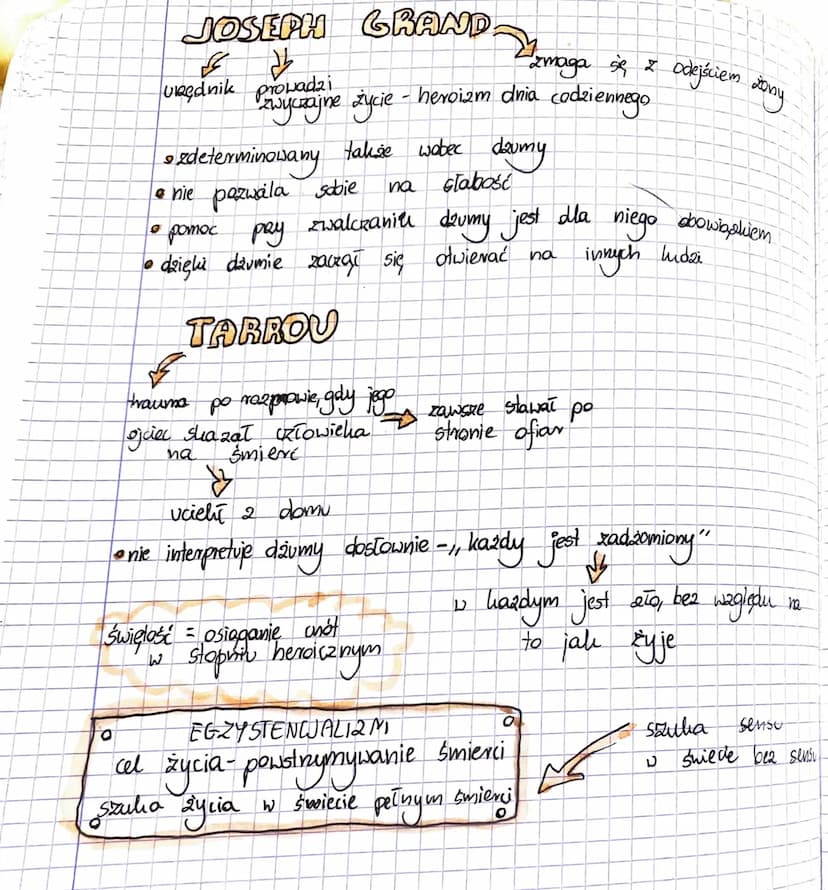 JOSEPH GRAND
zmaga się z odejściem żony
urzędnik prowadzi
zwyczajne życie - heroizm dnia codziennego
• zdeterminowany także wobec dżumy
• nie pozwala sobie na słabość
• pomoc przy zwalczaniu dżumy jest dla niego obowiązkiem
• dzięki dżumie zaczął się otwierać na innych ludzi
TARROU
trauma po rozprawie, gdy jego
ojciec skazał człowieka
na śmierć
zawsze stawał po
stronie ofiar
uciekł z domu
• nie interpretuje dżumy dosłownie - „każdy jest zadżumiony"
w każdym jest zło, bez względu na
to jak żyje
świętość = osiąganie cnót
w stopniu heroicznym
EGZYSTENCJALIZM
cel życia - powstrzymywanie śmierci
szuka życia w świecie pełnym śmierci
szuka sensu
w świecie bez sensu